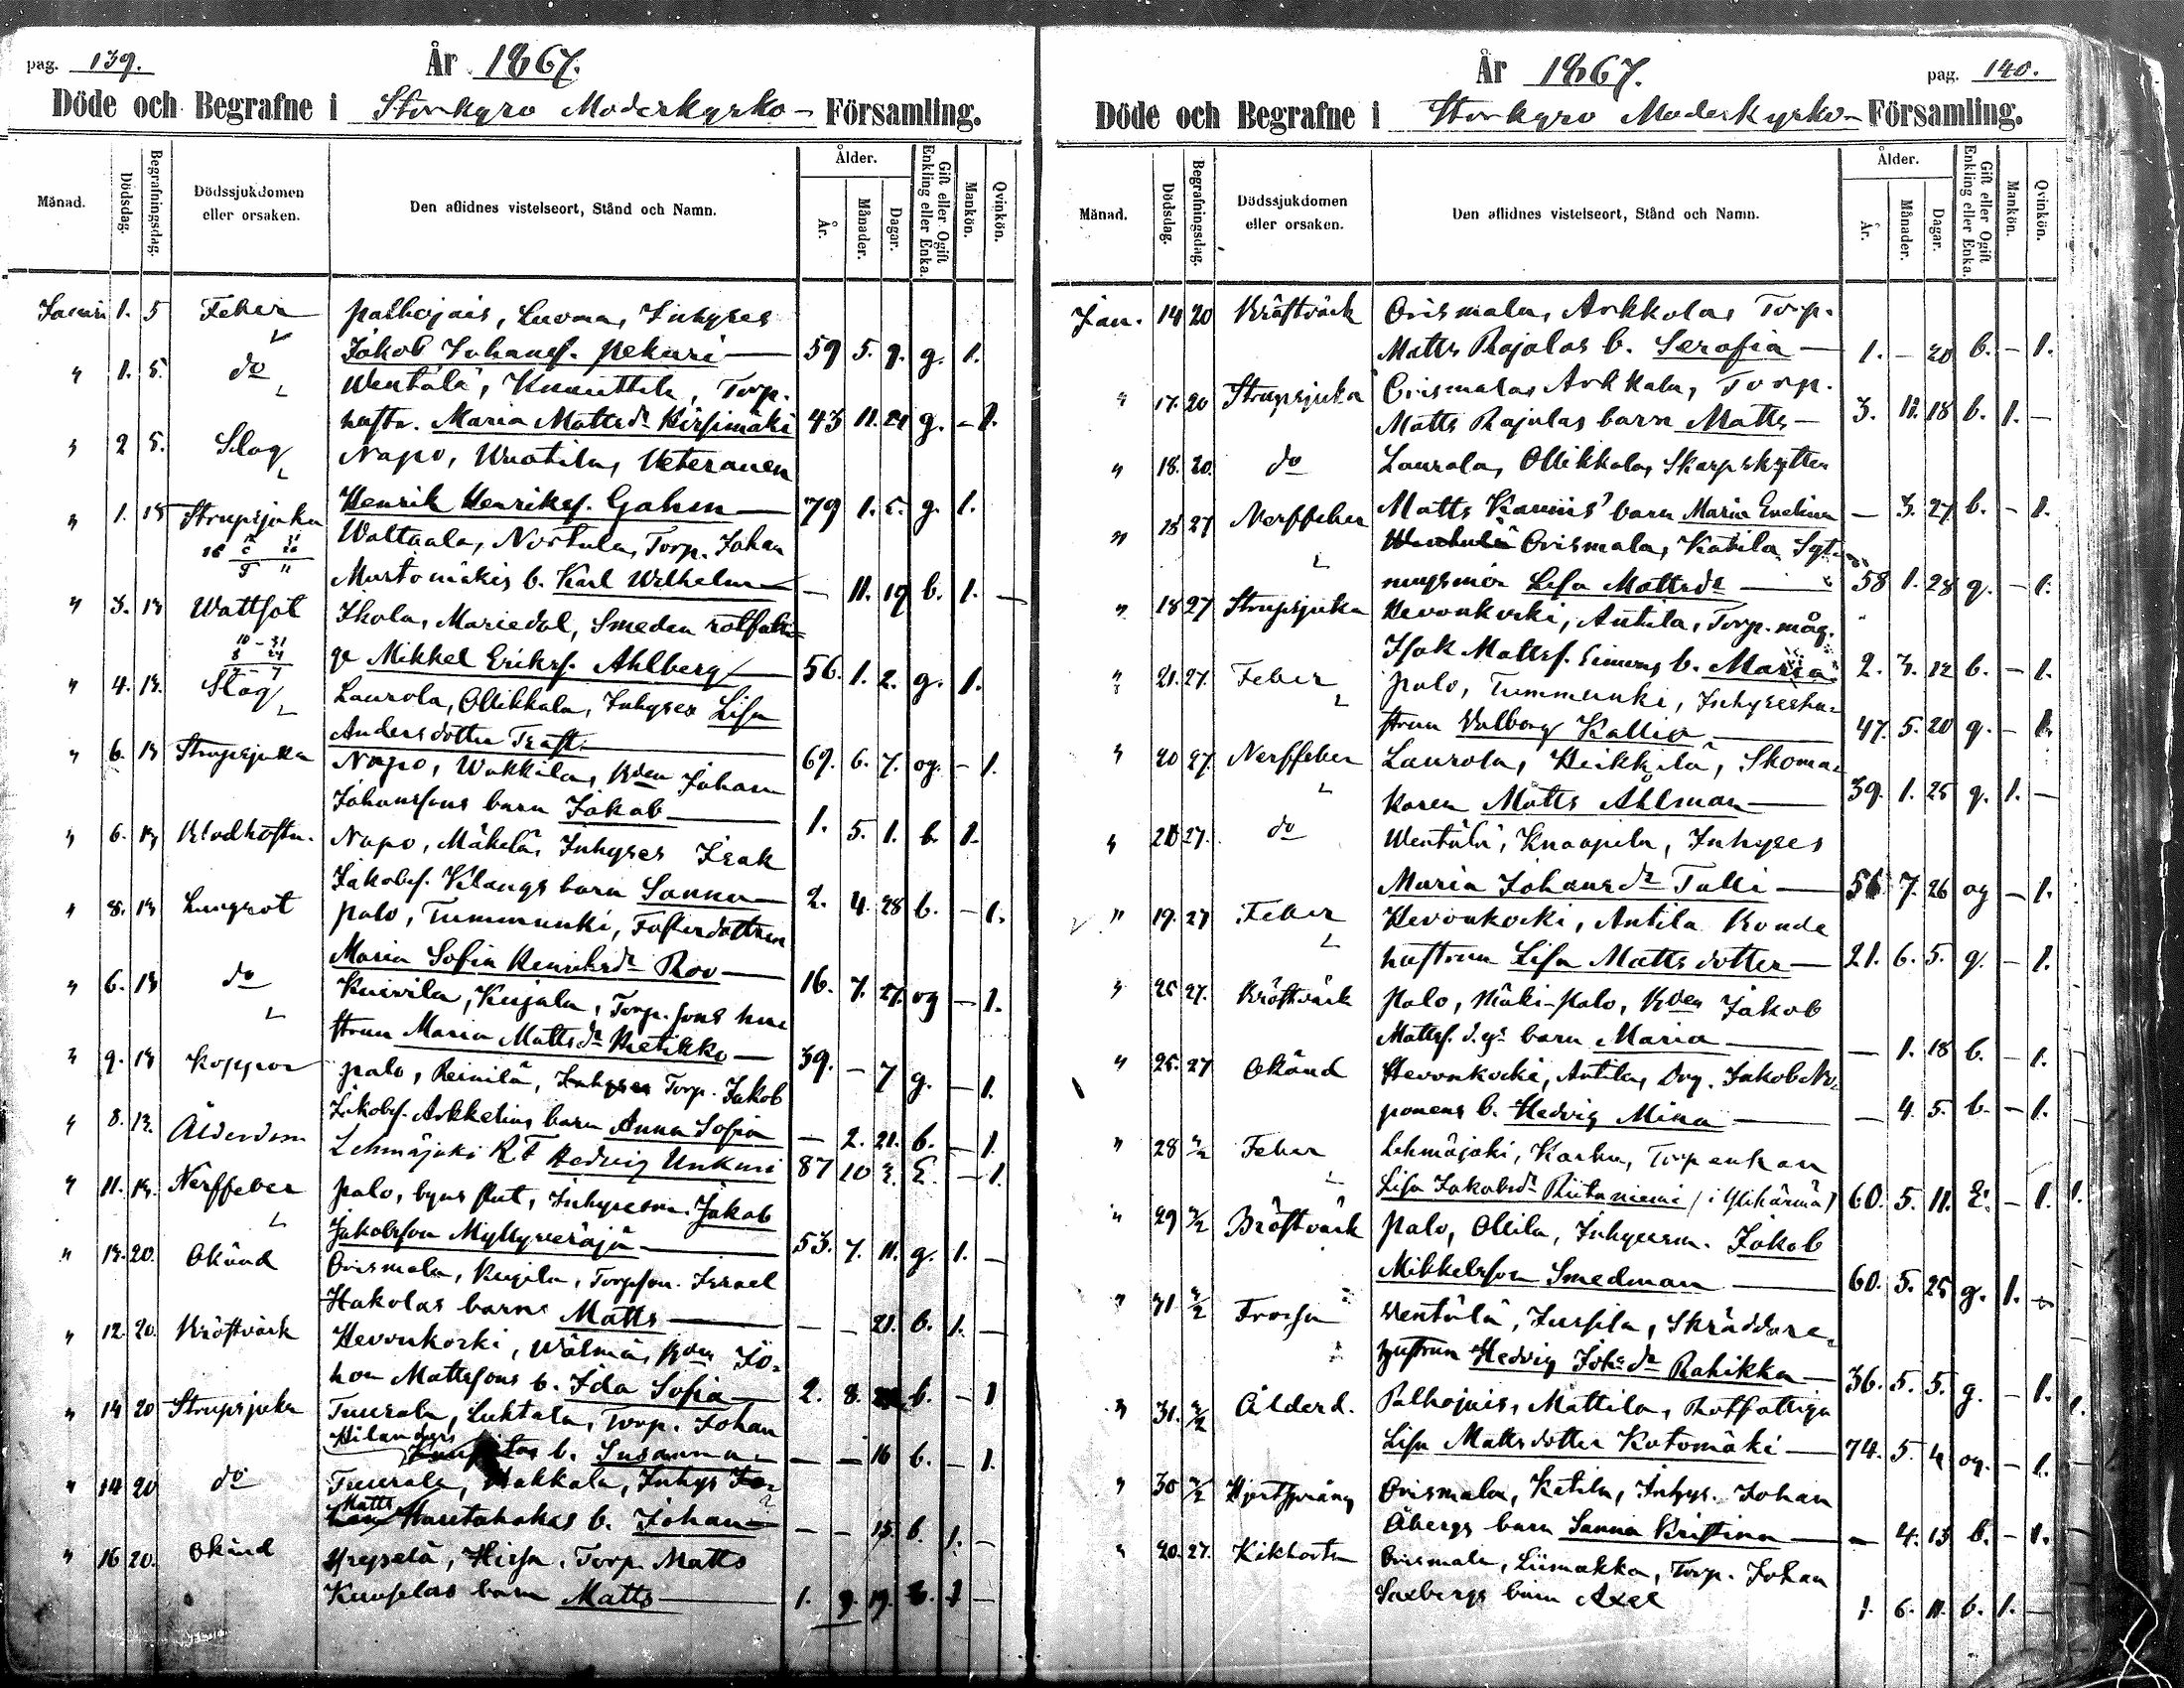 pag. 139.
År 1867.
Döde och Begrafne i Storkyro Moderkyrko- Församling.
Månad. Dödsdag. Begrafningsdag. Dödssjukdomen eller orsaken. Den aflidnes vistelseort, Stånd och Namn. Ålder. År. Månader. Dagar. Gift eller Ogift Enkling eller Enka. Mankön. Qvinkön.
Januari 1. 5 Feber Palhojais, Luoma, Inhyses
Jakob Johansf. Pekuri 59 5. 9. g. 1.
" 1. 5. do Wentälä, Knuuttila, Torp.
hustr. Maria Mattsdr Kirsimäki 43 11. 21 g. - 1.
" 2 5. Slag Napo, Wuotila, Veteranen
Henrik Henriksf. Gahm 79 1. 5. g. 1.
" 1. 13 Strupsjuka Waltaala, Nortula, Torp. Johan
Murtomäkis b. Karl Wilhelm — 11. 19 b. 1. —
" 3. 13 Wattsot Ikola, Mariedal, Smeden rotfatti=
ge Mikkel Eriksf. Ahlberg 56. 1. 2. g. 1.
" 4. 13. Slag Laurola, Ollikkala, Inhyses Lisa
Andersdotter Träft. 69. 6. 7. og. - 1.
" 6. 13 Strupsjuka Napo, Wakkila, Bden Johan
Johanssons barn Jakob 1. 5. 1. b. 1.
" 6. 13 Klodhosta. Napo, Mäkelä, Inhyses Isak
Jakobsf. Klangs barn Sanna 2. 4. 28 b. - 1.
" 8. 13 Lungsot Palo, Tummunki, Fosterdottren
Maria Sofia Henriksdr Roo 16. 7. 27. og - 1.
" 6. 13 do Kuivila, Kujala, Torp. sons hu
strun Maria Mattsdr Rietikko 39. — 7 g. - 1.
" 9. 13 Koppor Palo, Reinilä, Inhyses Torp. Jakob
Jakobsf. Arkkelins barn Anna Sofia — 2. 21. b. - 1.
" 8. 13. Ålderdom Lehmäjoki R.F. Hedvig Unkuri 87 10 3. E. - 1.
" 11. 13. Nerffeber Palo, byns slut, Inhysesm. Jakob
Jakobsson Myllyneräjä 53. 7. 11. g. 1. —
" 13. 20. Okänd Orismala, Kujila, Torpson. Israel
Hakolas barn Matts — — 21. b. 1. —
" 12. 20. Kräftvärk Hevonkoski, Wälimä, Bden Jo-
han Mattssons b. Ida Sofia 2. 8. b. - 1
" 14 20 Strupsjuka Tuurala, Luhtala, Torp. Johan
Hilanders b. Susanna — — 16 b. - 1.
" 14 20 do Tuurala, Hakkala, Inhys
Matts Hautahakas b. Johan — — 15. b. 1. —
" 16 20. Okänd Hirsa, Torp. Matts
barn Matts 1. 9. 19. b. 1 —
År 1867.
pag. 140.
Döde och Begrafne i Storkyro Moderkyrko- Församling.
Månad. Dödsdag. Begrafningsdag. Dödssjukdomen eller orsaken. Den aflidnes vistelseort, Stånd och Namn. Ålder. År. Månader. Dagar. Gift eller Ogift Enkling eller Enka. Mankön. Qvinkön.
Jan. 14 20 Kräftvärk Orismala, Arkkola, Torp.
Matts Rajalas b. Serafia 1. — 20 b. - 1.
" 17. 20 Strupsjuka Orismala, Arkkala, Torp.
Matts Rajalas barn Matts 3. 11. 18 b. 1. —
" 18. 20. do Laurola, Ollikkala, Skarpskytten
Matts Kaunis' barn Maria Evelina — 3. 27. b. - 1.
" 18 27 Nerffeber Wentälä Orismala, Katila, Syt-
ningsmor Lisa Mattsdr 58 1. 28 g. - 1.
" 18 27 Strupsjuka Hevonkoski, Antila, Torp. måg.
Isak Mattsf. Simons b. Maria 2. 3. 12 b. - 1.
" 21. 27. Feber Palo, Tummunki, Inhyseshu-
strun Valborg Kallio 47. 5. 20 g. - 1.
" 20 27. Nerffeber Laurola, Heikkilä, Skoma-
karen Matts Ahlman 39. 1. 25 g. 1. —
" 20 27. do Wentälä, Knaapila, Inhyses
Maria Johansdr Talli 56 7. 26 og - 1.
" 19. 27 Feber Hevonkoski, Antila Bonde
hustrun Lisa Mattsdotter 21. 6. 5. g. - 1.
" 25 27. Kräftvärk Palo, Mäki-Palo, Bden Jakob
Mattsf. d.y. barn Maria — 1. 18 b. - 1.
" 25. 27 Okänd Hevonkoski, Antila, Drg. Jakob No-
ponens b. Hedvig Mina — 4. 5. b. - 1.
" 28 3/2 Feber Lehmäjoki, Karhu, Torpenkan
Lisa Jakobsdr Riitaniemi (i Ylikärmä) 60. 5. 11. E. - 1.
" 29 3/2 Bröstvärk Palo, Ollila, Inhysesm. Jakob
Mikkelsson Smedman 60. 5. 25 g. 1. —
" 31 3/2 Frossa Wentälä, Jussila, Skräddare-
hustrun Hedvig Johsdr Rahikka 36. 5. 5. g. - 1.
" 31. 3/2 Ålderd. Palhojais, Mattila, Rotfattiga
Lisa Mattsdotter Kotomäki 74. 5 4 og. - 1.
" 30 3/2 Hjertspräng Orismala, Katila, Inhys. Johan
Åbergs barn Sanna Kristina — 4. 13 b. - 1.
" 20. 27. Kikhosta Orismala, Liimakka, Torp. Johan
Saxbergs barn Axel 1. 6. 11. b. 1. —